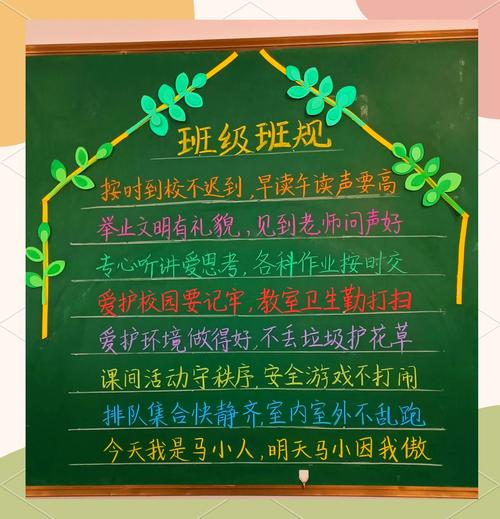 班级班规
按时到校不迟到,早读午读声要高
举止文明有礼貌,见到老师问声好
专心听讲爱思考,各科作业按时交
爱护校园要记牢,教室卫生勤打扫
爱护环境做得好,不丢垃圾护花草
课间活动守秩序,安全游戏不打闹
排队集合快静齐,室内室外不乱跑
今天我是马小人,明天马小因我傲